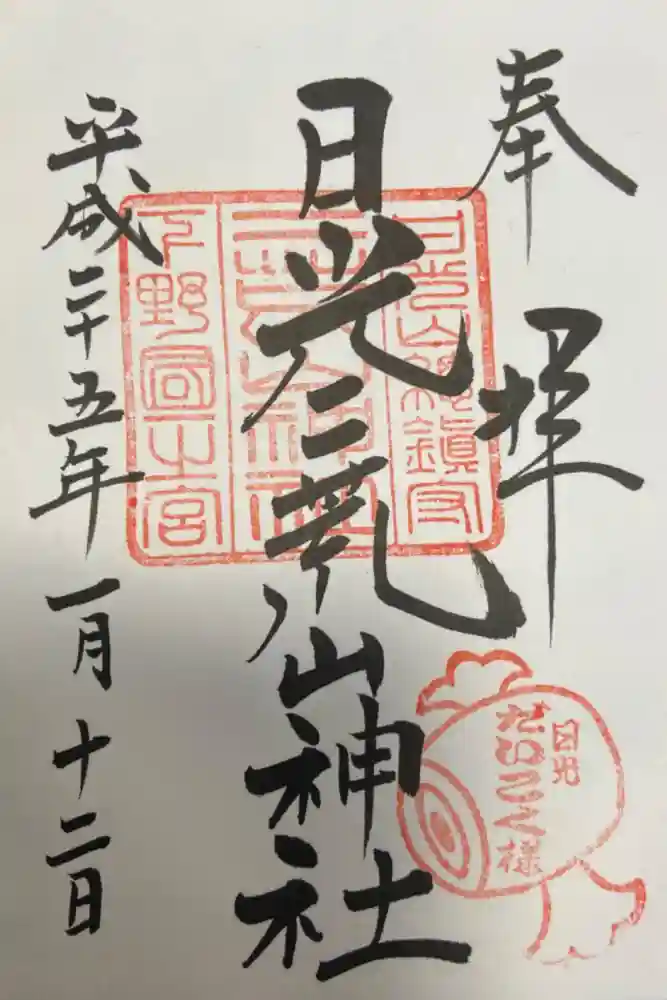 奉拝
日光二荒山神社
平成二十五年一月十二日
日光山総鎮守
二荒山神社
下野国一之宮
日光
だいこく様